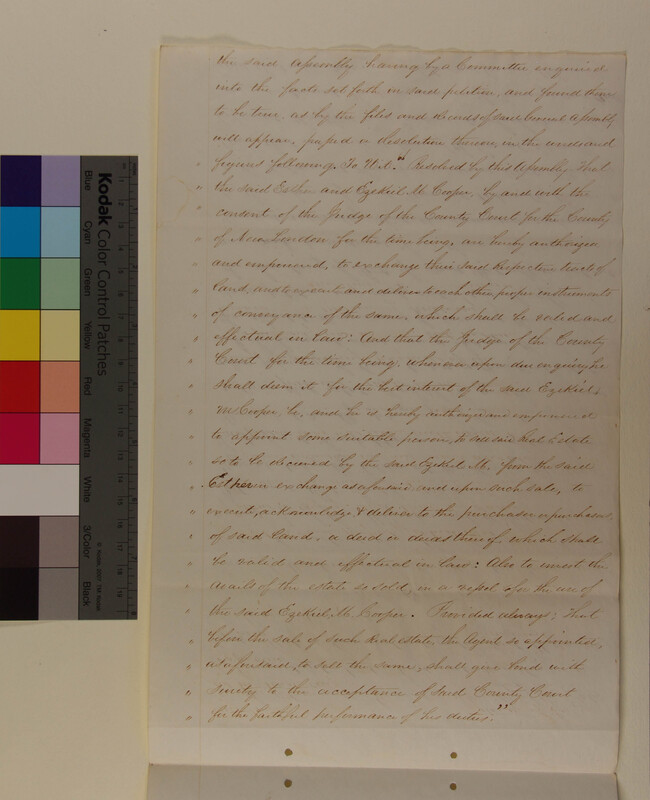 the said assembly having by a Committee enquired
into the facts set forth in said petition, and found them
to be true, as by the files and records of said General Assembly
will appear, passed a resolution thereon, in the words and
" figures following, To Wit. " Resolved by this Assembly That
" the said Esther and Ezekiel M. Cooper, by and with the
" consent of the Judge of the County Court for the County
" of New London for the time being, are hereby authorized
" and empowered, to exchange their said respective tracts of
" land, and to execute and deliver to each other proper instruments
" of conveyance of the same, which shall be valid and
" effectual in law: And that the Judge of the County
" Court for the time being, whenever upon due enquiry he
" shall deem it for the best interest of the said Ezekiel
" M Cooper, be, and he is hereby authorized and empowered
" to appoint some suitable person, to sell said Real Estate
" so to be received by the said Ezekiel M. from the said
" Esther in exchange as aforesaid and upon such sale, to
" execute, acknowledge, & deliver to the purchaser or purchasers,
" of said land, a deed or deeds thereof, which shall
" be valid and effectual in law: Also to invest the
" avails of the estate so sold, in a vessel for the use of
" the said Ezekiel M. Cooper. Provided always; That
" before the sale of such Real estate, the Agent so appointed,
" as aforesaid, to sell the same, shall give bond with
" surety to the acceptance of said County Court
" for the faithful performance of his duties."
Kodak Color Control Patches
Blue
Cyan
Green
Yellow
Red
Magenta
White
3/Color
Black